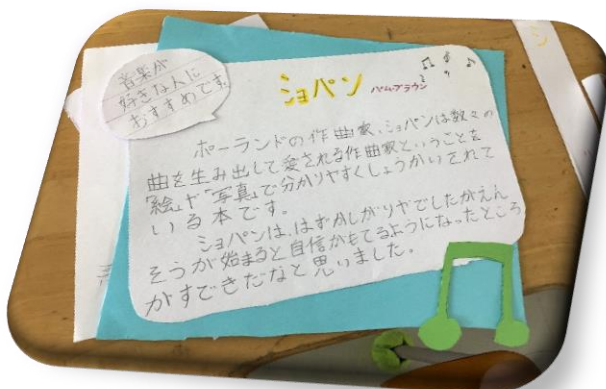 音楽が
好きな人に
おすすめです。
ショパン
パム・ブラウン
ポーランドの作曲家、ショパンは数々の
曲を生み出して愛される作曲家ということを
「絵」や「写真」で分かりやすくしょうかいされて
いる本です。
ショパンは、はずかしがりやでしたがえん
そうが始まると自信がもてるようになったところ
がすてきだなと思いました。